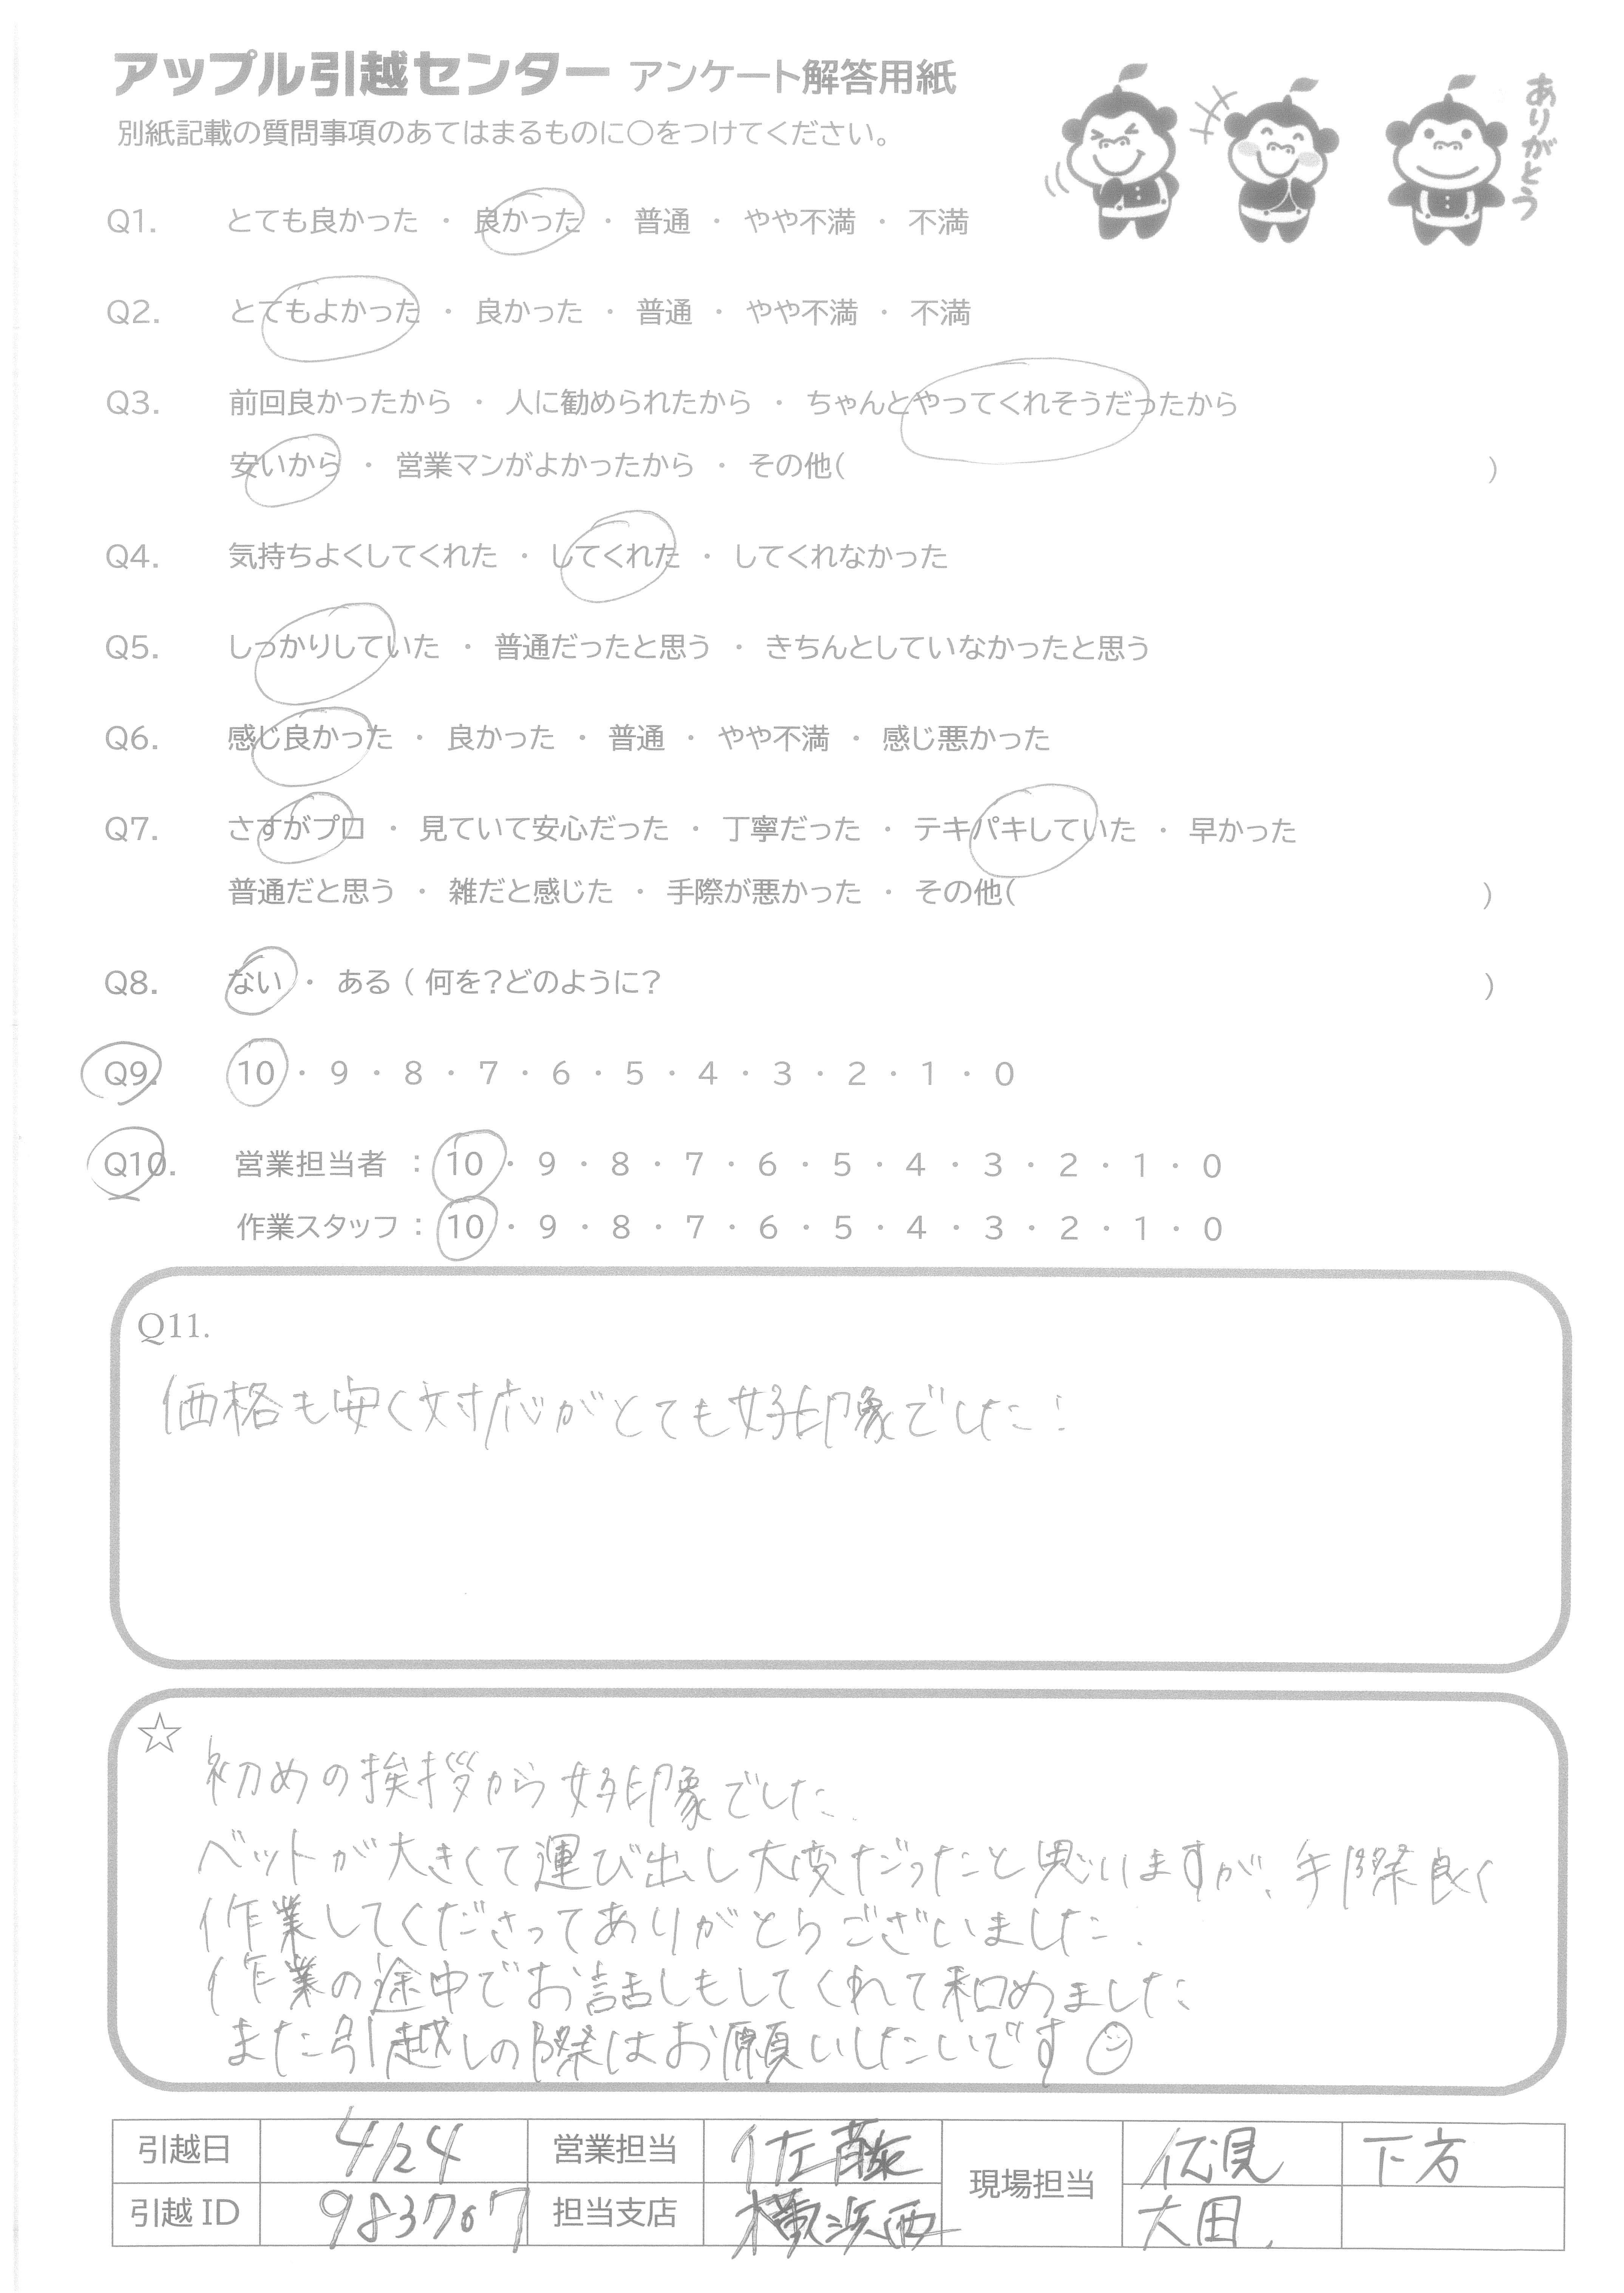 アップル引越センター アンケート解答用紙
別紙記載の質問事項のあてはまるものに○をつけてください。
ありがとう
Q1. とても良かった ・ 良かった ・ 普通 ・ やや不満 ・ 不満
Q2. とてもよかった ・ 良かった ・ 普通 ・ やや不満 ・ 不満
Q3. 前回良かったから ・ 人に勧められたから ・ ちゃんとやってくれそうだったから
安いから ・ 営業マンがよかったから ・ その他( )
Q4. 気持ちよくしてくれた ・ してくれた ・ してくれなかった
Q5. しっかりしていた ・ 普通だったと思う ・ きちんとしていなかったと思う
Q6. 感じ良かった ・ 良かった ・ 普通 ・ やや不満 ・ 感じ悪かった
Q7. さすがプロ ・ 見ていて安心だった ・ 丁寧だった ・ テキパキしていた ・ 早かった
普通だと思う ・ 雑だと感じた ・ 手際が悪かった ・ その他( )
Q8. ない ・ ある ( 何を?どのように? )
Q9. 10 ・ 9 ・ 8 ・ 7 ・ 6 ・ 5 ・ 4 ・ 3 ・ 2 ・ 1 ・ 0
Q10. 営業担当者 : 10 ・ 9 ・ 8 ・ 7 ・ 6 ・ 5 ・ 4 ・ 3 ・ 2 ・ 1 ・ 0
作業スタッフ : 10 ・ 9 ・ 8 ・ 7 ・ 6 ・ 5 ・ 4 ・ 3 ・ 2 ・ 1 ・ 0
Q11.
価格も安く対応がとても好印象でした!
☆ 初めの挨拶から好印象でした.
ベットが大きくて運び出し大変だったこと思いますが、手際良く
作業してくださってありがとうございました.
作業の途中でお話しもしてくれて和めました
また引越しの際はお願いしたいです
引越日 4/24 営業担当 佐藤 現場担当 伏見 下方
引越 ID 983707 担当支店 横浜西 大田.